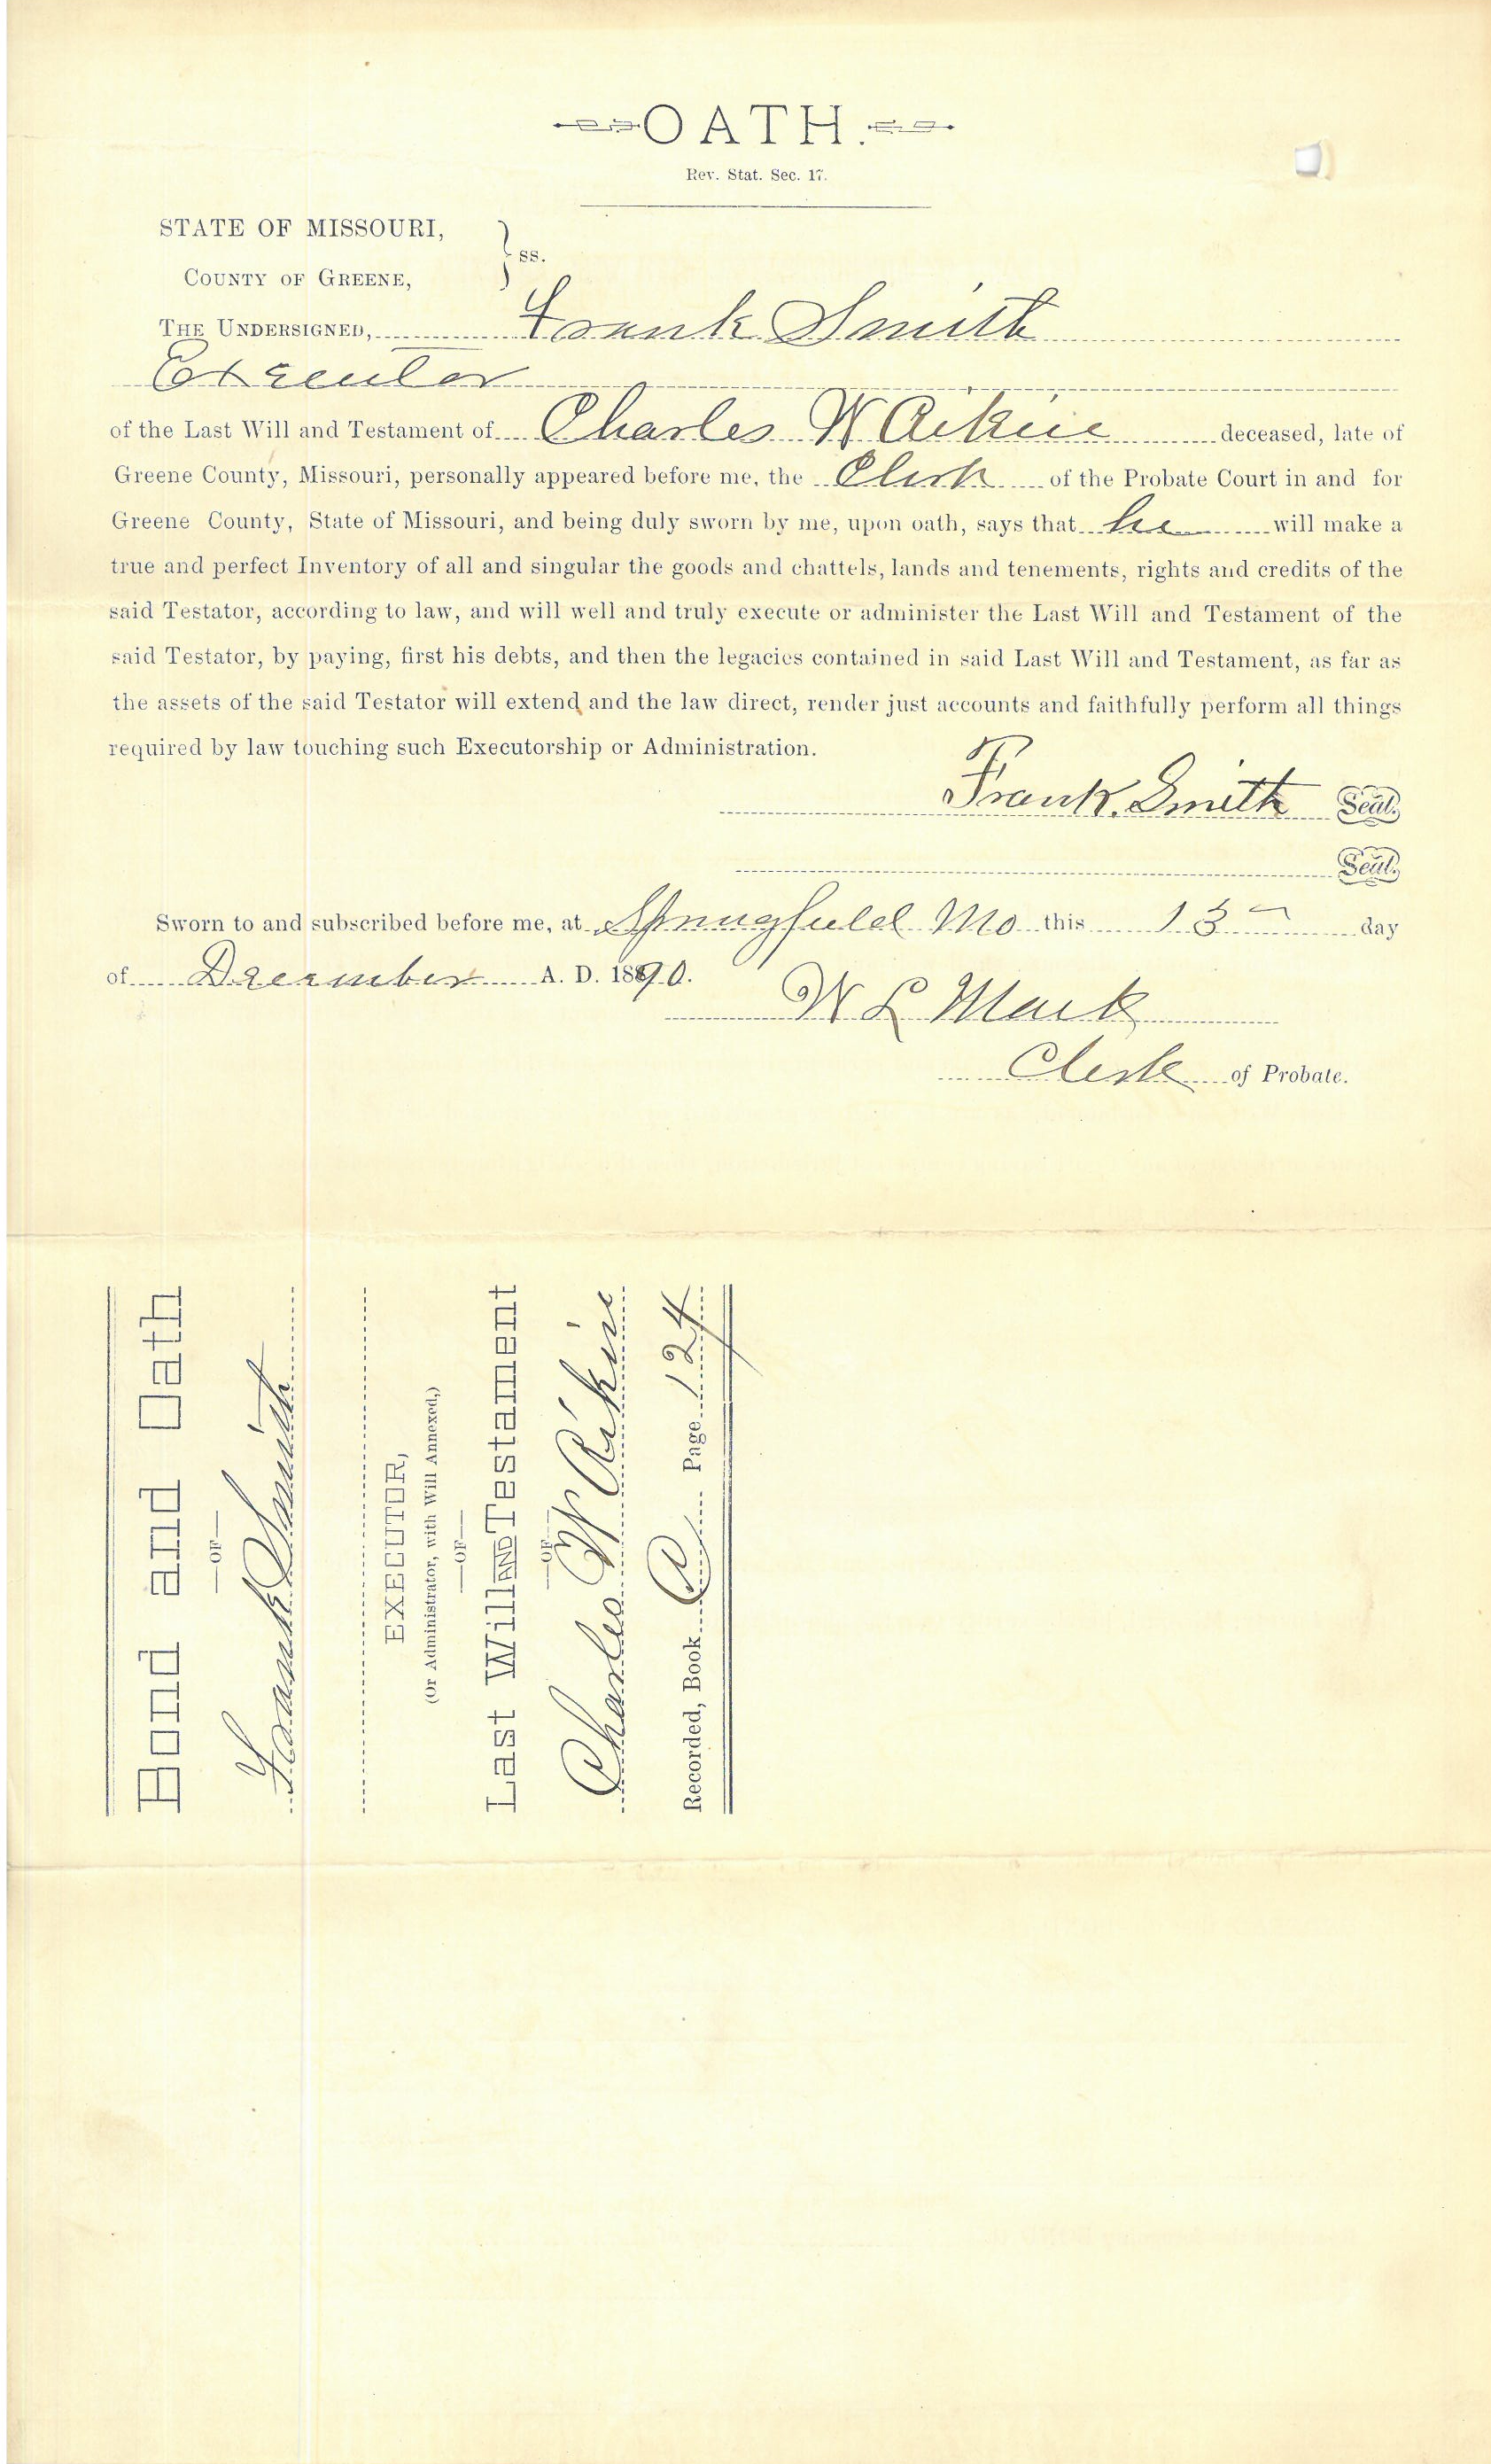 OATH.
Rev. Stat. Sec. 17.
STATE OF MISSOURI,
COUNTY OF GREENE, } ss.
THE UNDERSIGNED, Frank Smith
Executor
of the Last Will and Testament of Charles W Aikin deceased, late of
Greene County, Missouri, personally appeared before me, the Clerk of the Probate Court in and for
Greene County, State of Missouri, and being duly sworn by me, upon oath, says that he will make a
true and perfect Inventory of all and singular the goods and chattels, lands and tenements, rights and credits of the
said Testator, according to law, and will well and truly execute or administer the Last Will and Testament of the
said Testator, by paying, first his debts, and then the legacies contained in said Last Will and Testament, as far as
the assets of the said Testator will extend and the law direct, render just accounts and faithfully perform all things
required by law touching such Executorship or Administration.
Frank Smith Seal.
Seal.
Sworn to and subscribed before me, at Springfield Mo this 13 day
of December A. D. 1890.
W L Mack
Clerk of Probate.
Bond and Oath
—OF—
Frank Smith
EXECUTOR,
(Or Administrator, with Will Annexed,)
—OF—
Last Will AND Testament
—OF—
Charles W Aikin
Recorded, Book C Page 124